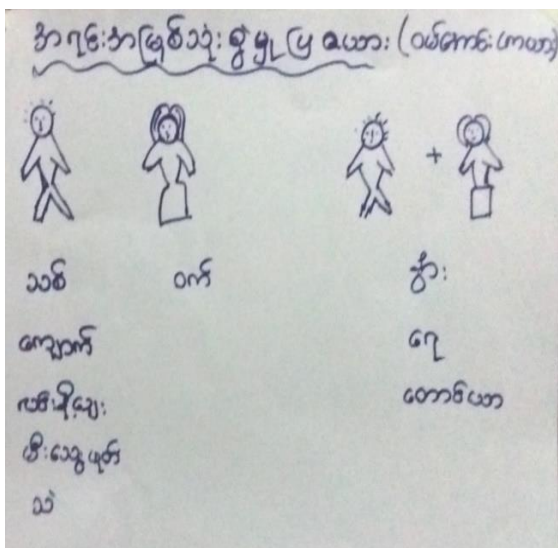 အရင်းအမြစ်သုံးစွဲမှုပြဇယား (ဝမ်ကောင်းဟာယာ)
+
သစ် ဝက် နွား
ကျောက် ရေ
လမ်းမိုးချေး တောင်ယာ
မီးသွေးဖုတ်
သဲ